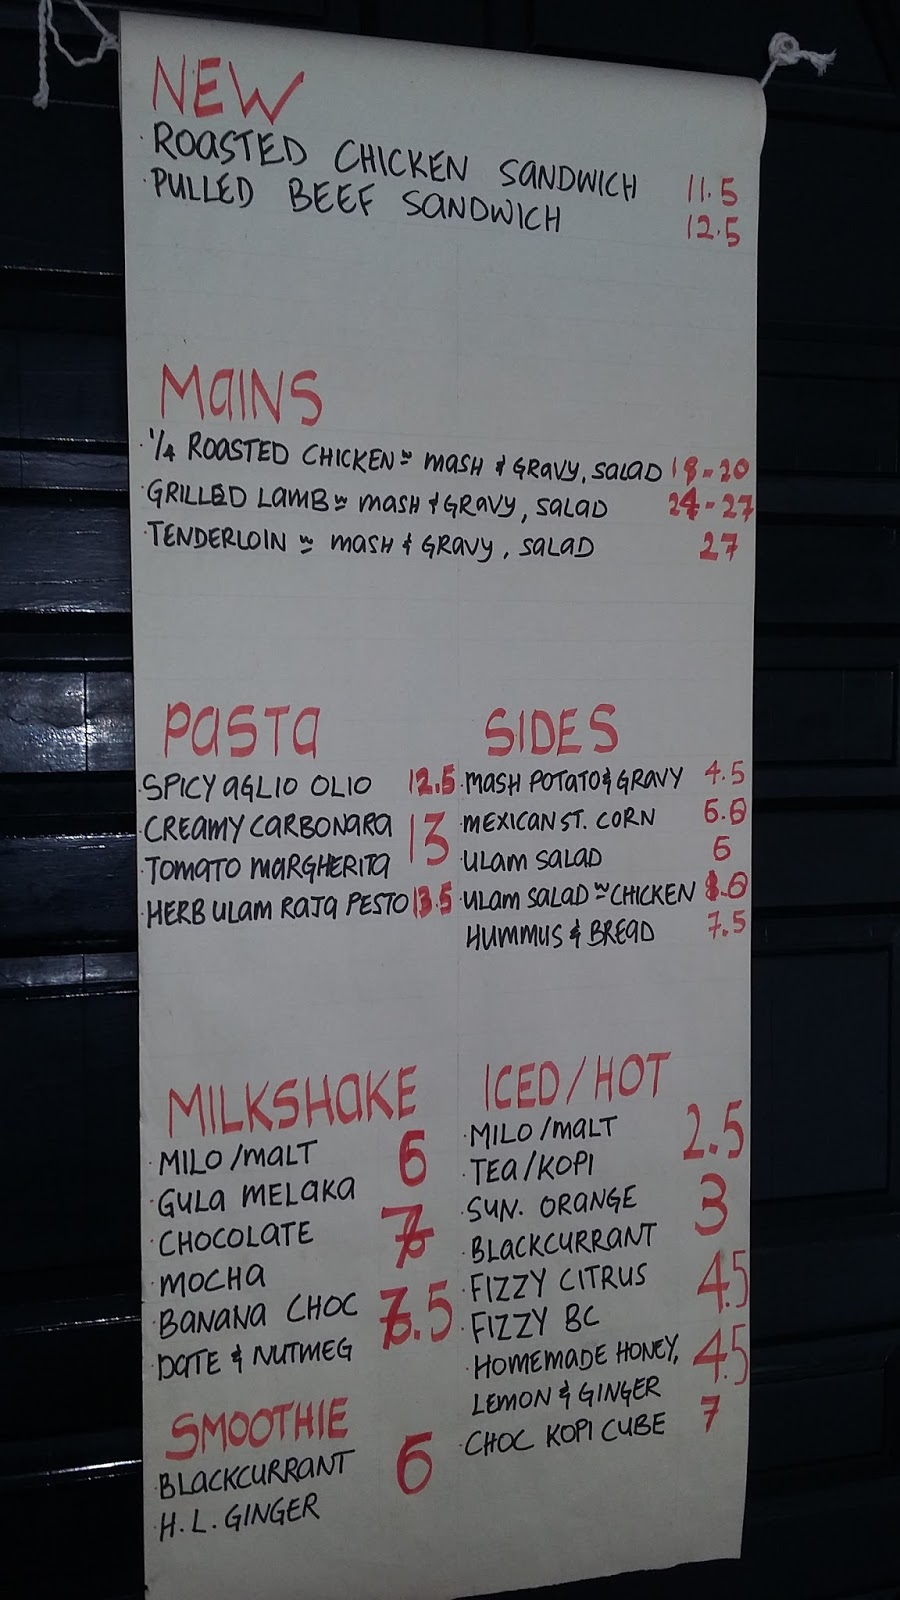 NEW
· ROASTED CHICKEN SANDWICH 11.5
· PULLED BEEF SANDWICH 12.5
MAINS
· 1/4 ROASTED CHICKEN w MASH & GRAVY, SALAD 18-20
· GRILLED LAMB w MASH & GRAVY, SALAD 24-27
· TENDERLOIN w MASH & GRAVY, SALAD 27
PASTA
· SPICY AGLIO OLIO 12.5
· CREAMY CARBONARA 13
· TOMATO MARGHERITA
· HERB ULAM RAJA PESTO 13.5
SIDES
· MASH POTATO & GRAVY 4.5
· MEXICAN ST. CORN
· ULAM SALAD 6
· ULAM SALAD w CHICKEN
HUMMUS & BREAD 7.5
MILKSHAKE
· MILO /MALT 6
· GULA MELAKA
· CHOCOLATE 7
· MOCHA
· BANANA CHOC 7.5
· DATE & NUTMEG
SMOOTHIE
· BLACKCURRANT 6
· H.L. GINGER
ICED/HOT
· MILO /MALT 2.5
· TEA/KOPI
· SUN. ORANGE 3
· BLACKCURRANT
· FIZZY CITRUS 4.5
· FIZZY BC
· HOMEMADE HONEY, 4.5
LEMON & GINGER
· CHOC KOPI CUBE 7